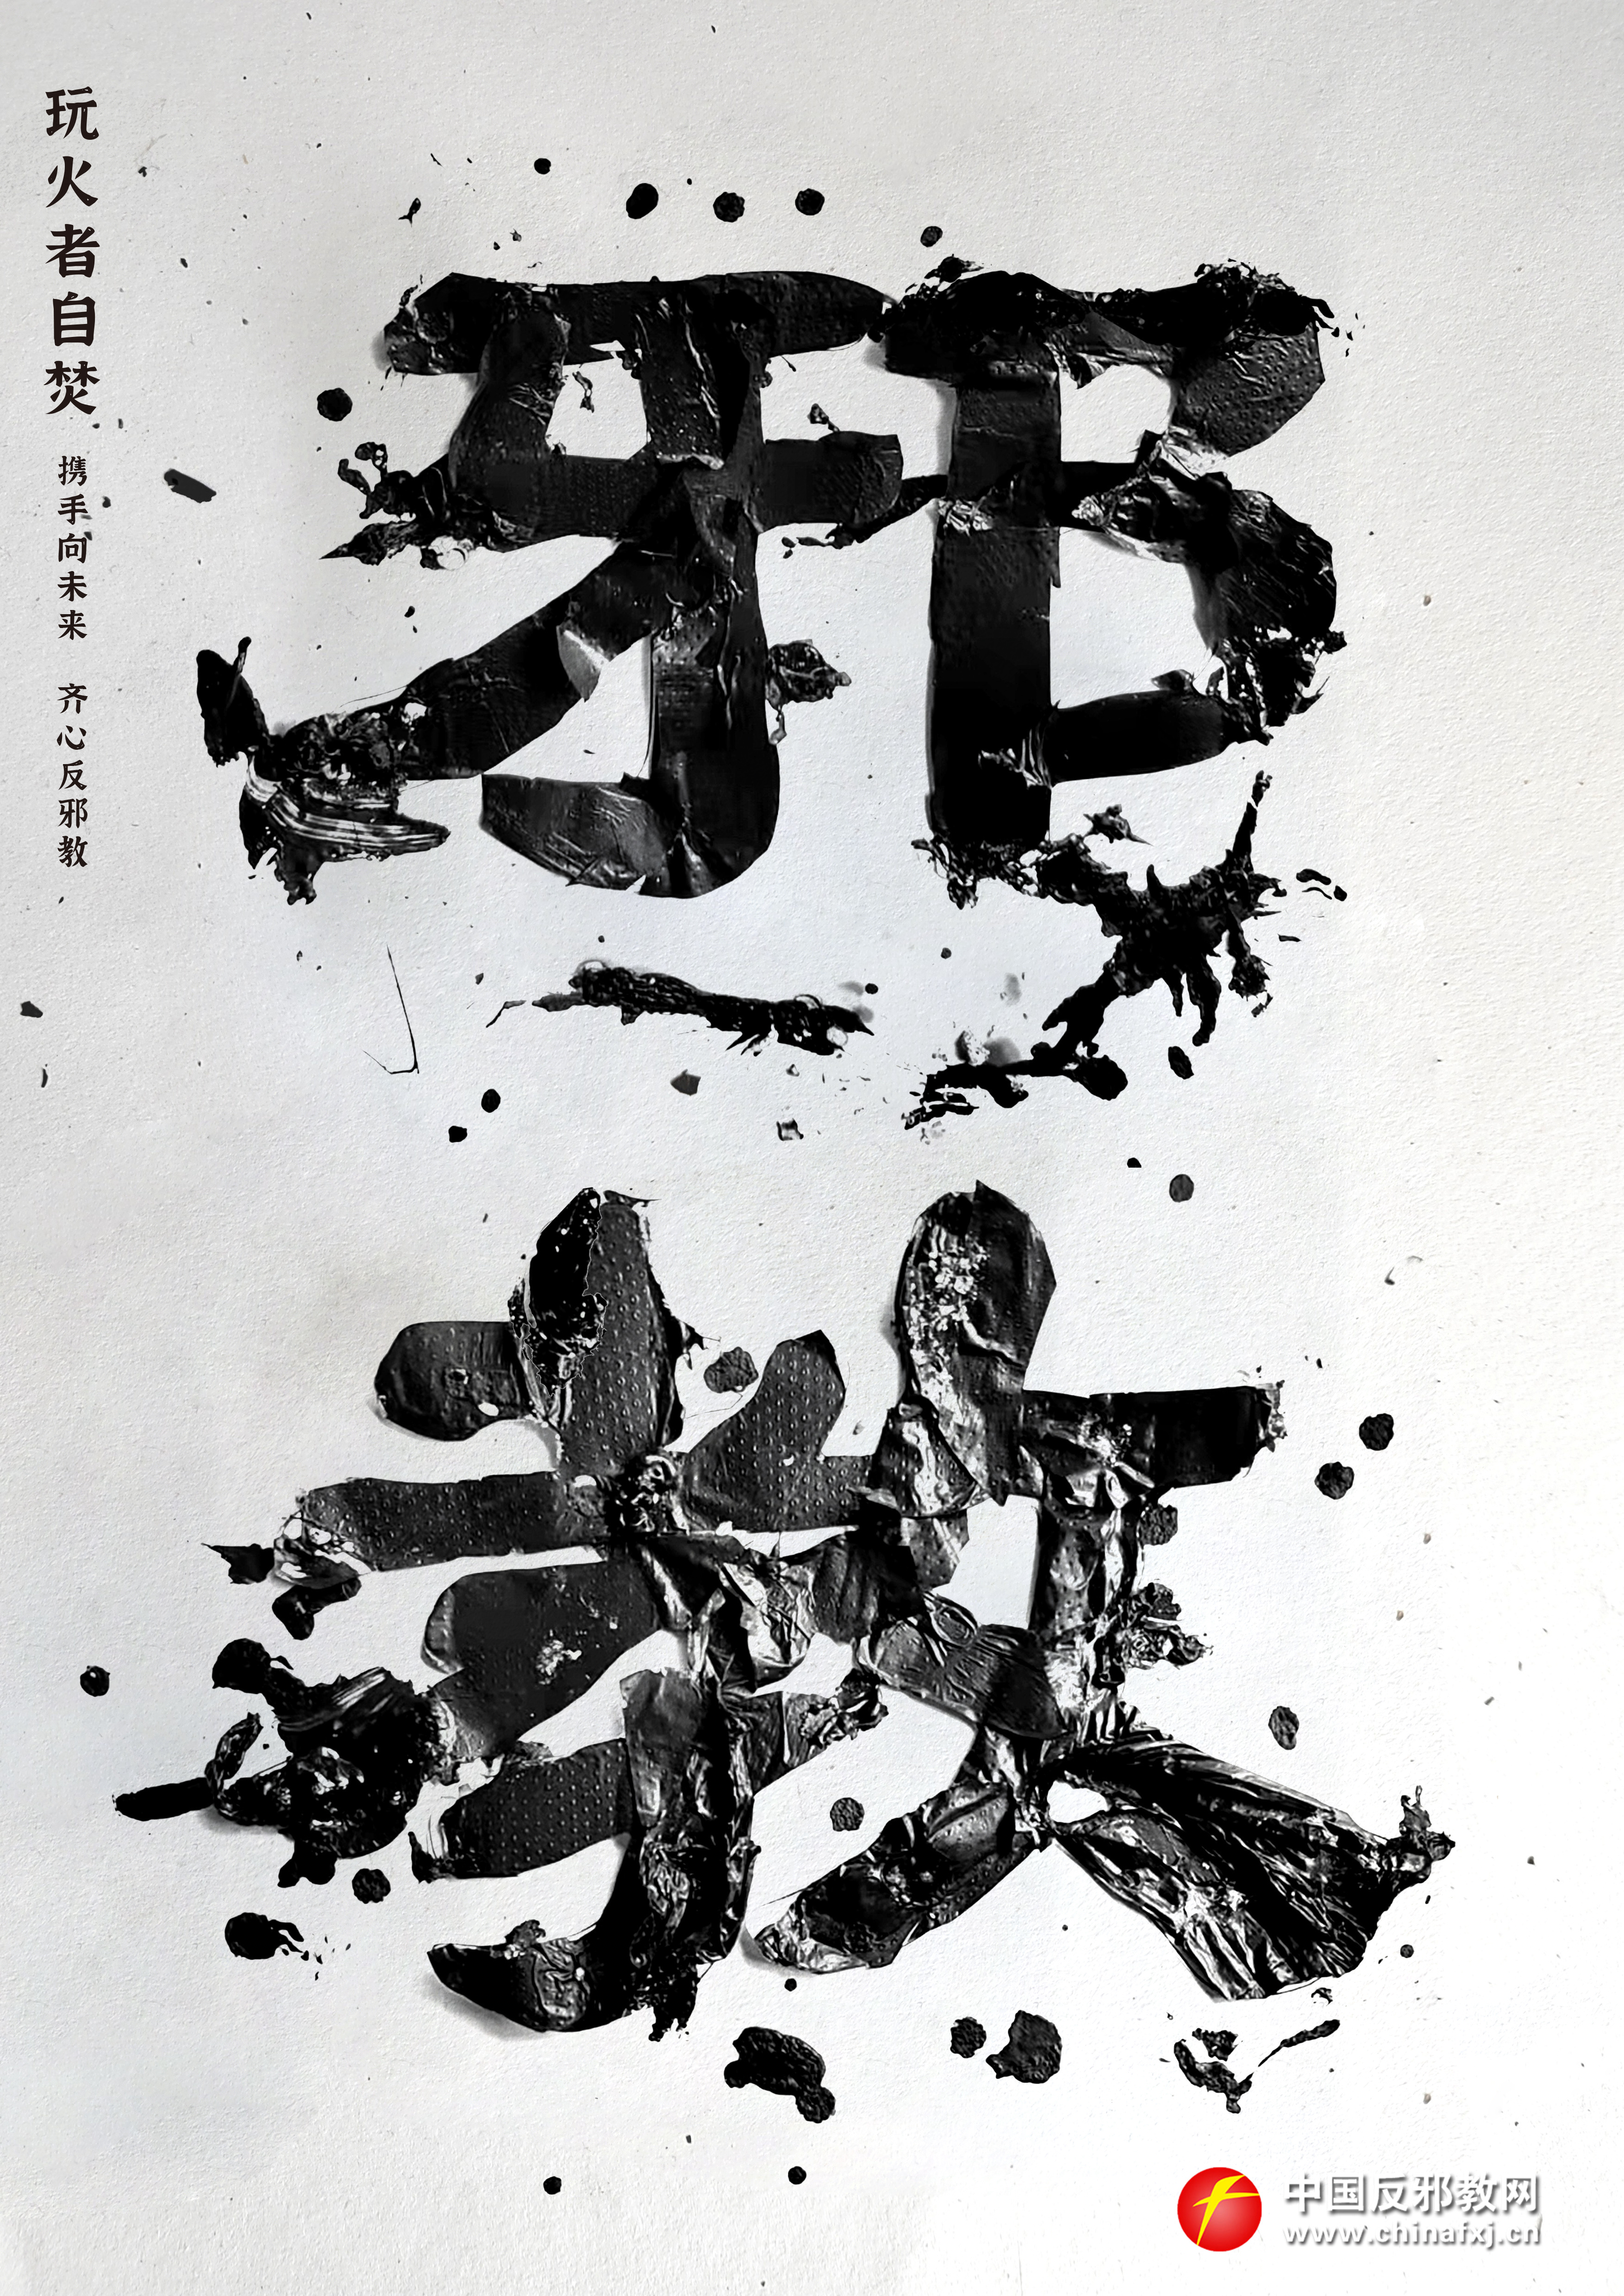 玩火者自焚
携手向未来 齐心反邪教
邪
教
中国反邪教网
www.chinafxj.cn